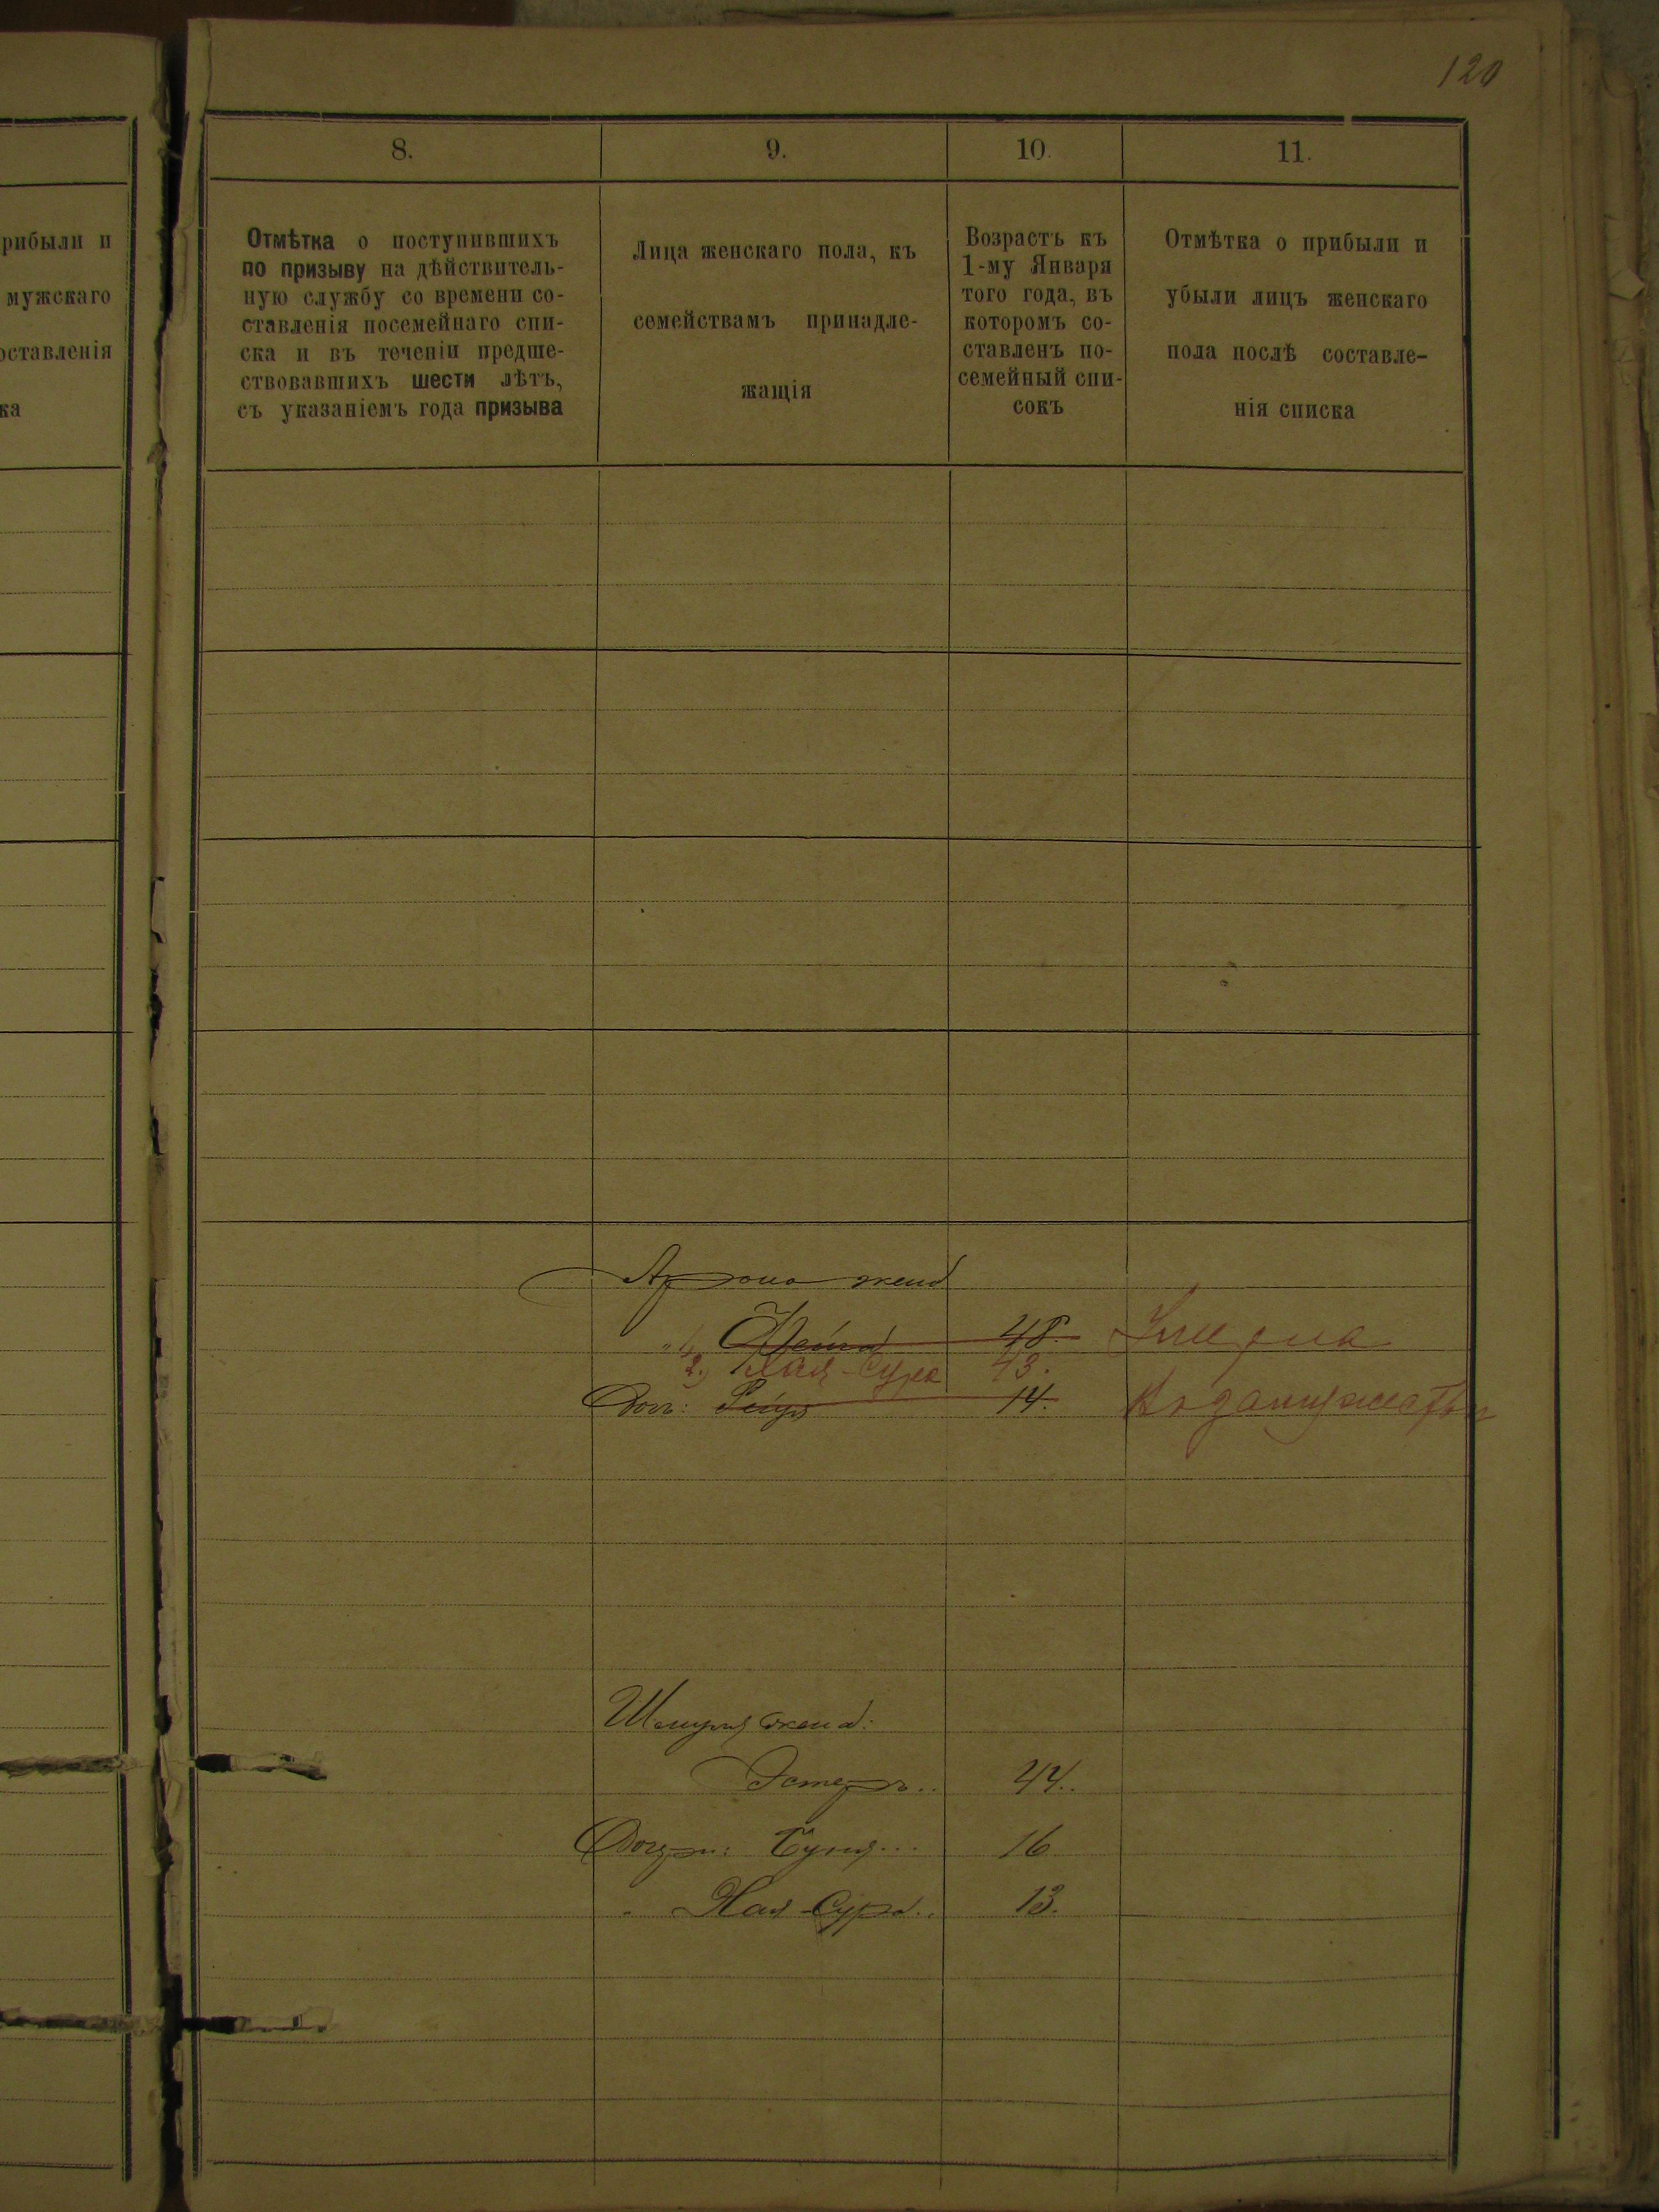 120
рибыли и
мужскаго
оставленія
ка
8.
9.
10.
11.
Отмѣтка о поступившихъ
по призыву на дѣйствитель-
ную службу со времени со-
ставленія посемейнаго спи-
ска и въ теченіи предше-
ствовавшихъ шести лѣтъ,
съ указаніемъ года призыва
Лица женскаго пола, къ
семействамъ принадле-
жащія
Возрастъ къ
1-му Января
того года, въ
которомъ со-
ставленъ по-
семейный спи-
сокъ
Отмѣтка о прибыли и
убыли лицъ женскаго
пола послѣ составле-
нія списка
Арона жена
1, 48. Умерла
2, Хая-Сура 43.
Доч: 14. Въ замужествѣ
Шмуля жена:
Эстеръ.. 44..
Дочери: Буня... 16
Хая-Сура.. 13.